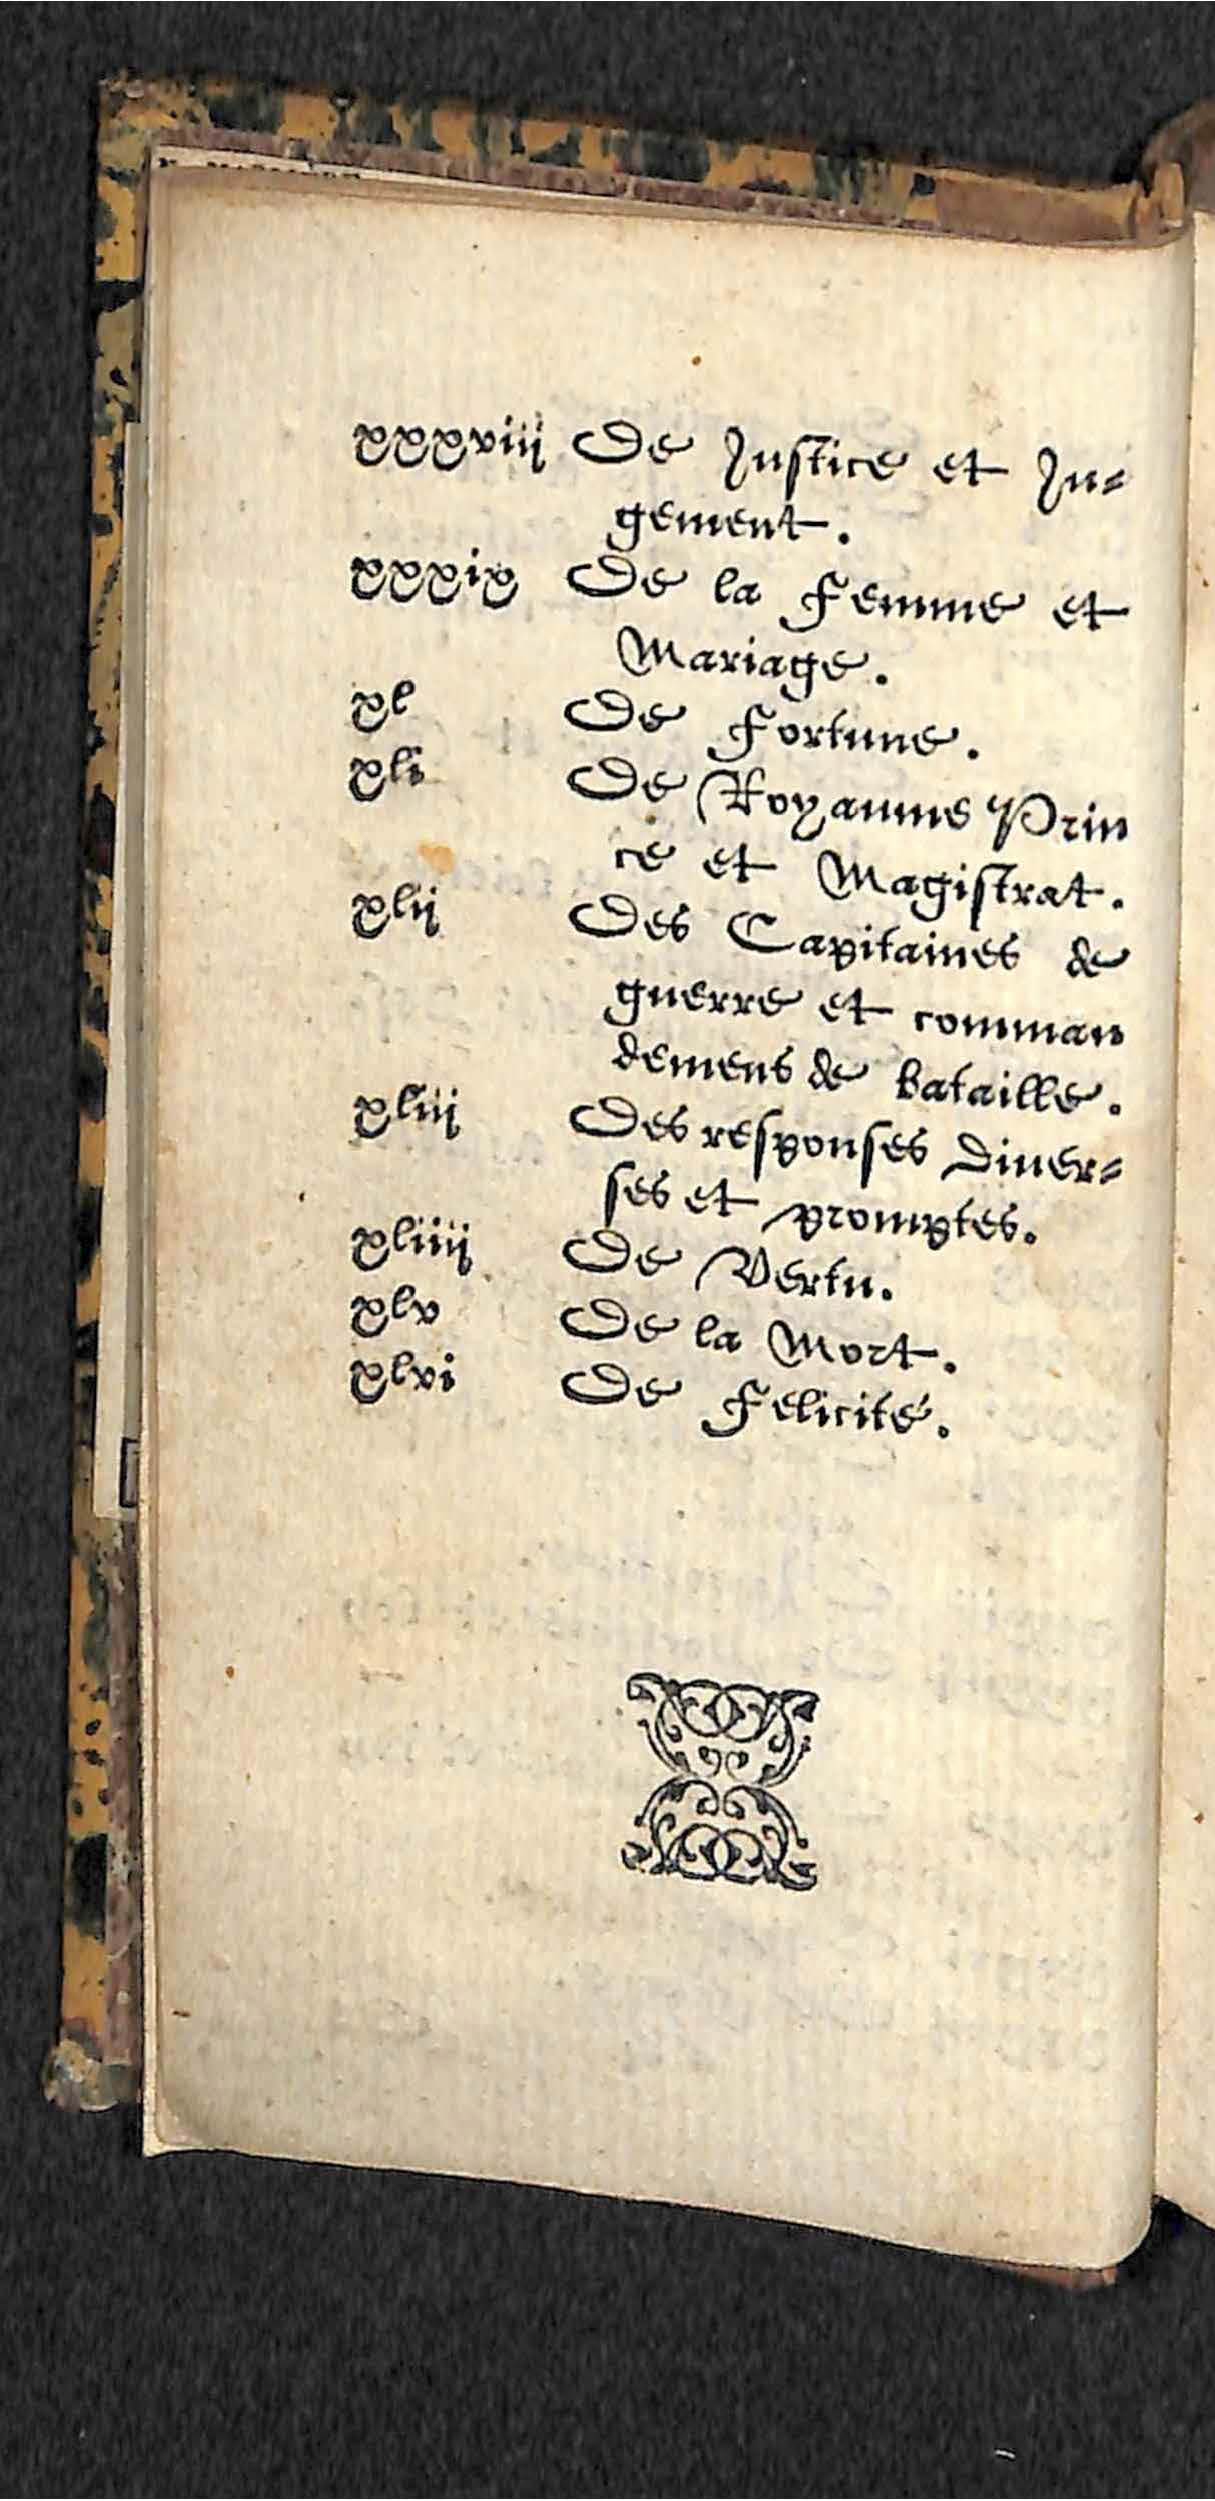 xxxviij De Justice et Ju-
gement.
xxxix De la Femme et
Mariage.
xl De Fortune.
xli De Royaume Prin
ce et Magistrat.
xlij Des Capitaines de
guerre et comman
demens de bataille.
xliij Des responses diuer-
ses et promptes.
xliiij De Vertu.
xlv De la Mort.
xlvi De Felicité.